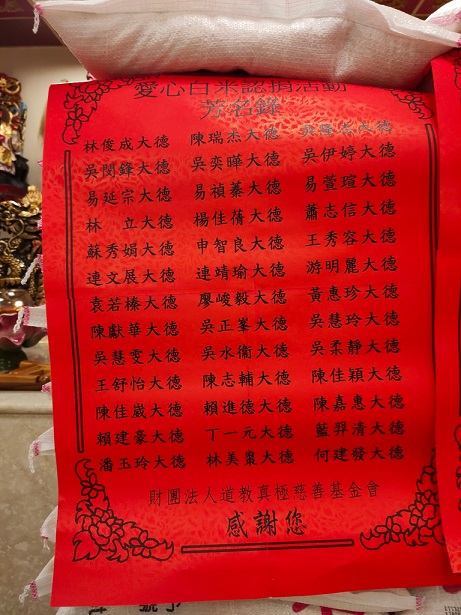 愛心白米認捐活動
芳名錄
林俊成大德 陳瑞杰大德 大德
吳閔鋒大德 吳奕曄大德 吳伊婷大德
易延宗大德 易禎蓁大德 易萱瑄大德
林 立大德 楊佳蒨大德 蕭志信大德
蘇秀娟大德 申智良大德 王秀容大德
連文展大德 連靖瑜大德 游明麗大德
袁若榛大德 廖峻毅大德 黃惠珍大德
陳獻華大德 吳正峯大德 吳慧玲大德
吳慧雯大德 吳水衡大德 吳柔靜大德
王舒怡大德 陳志輔大德 陳佳穎大德
陳佳崴大德 賴進德大德 陳嘉惠大德
賴建豪大德 丁一元大德 藍羿清大德
潘玉玲大德 林美棗大德 何建發大德
財團法人道教真極慈善基金會
感謝您